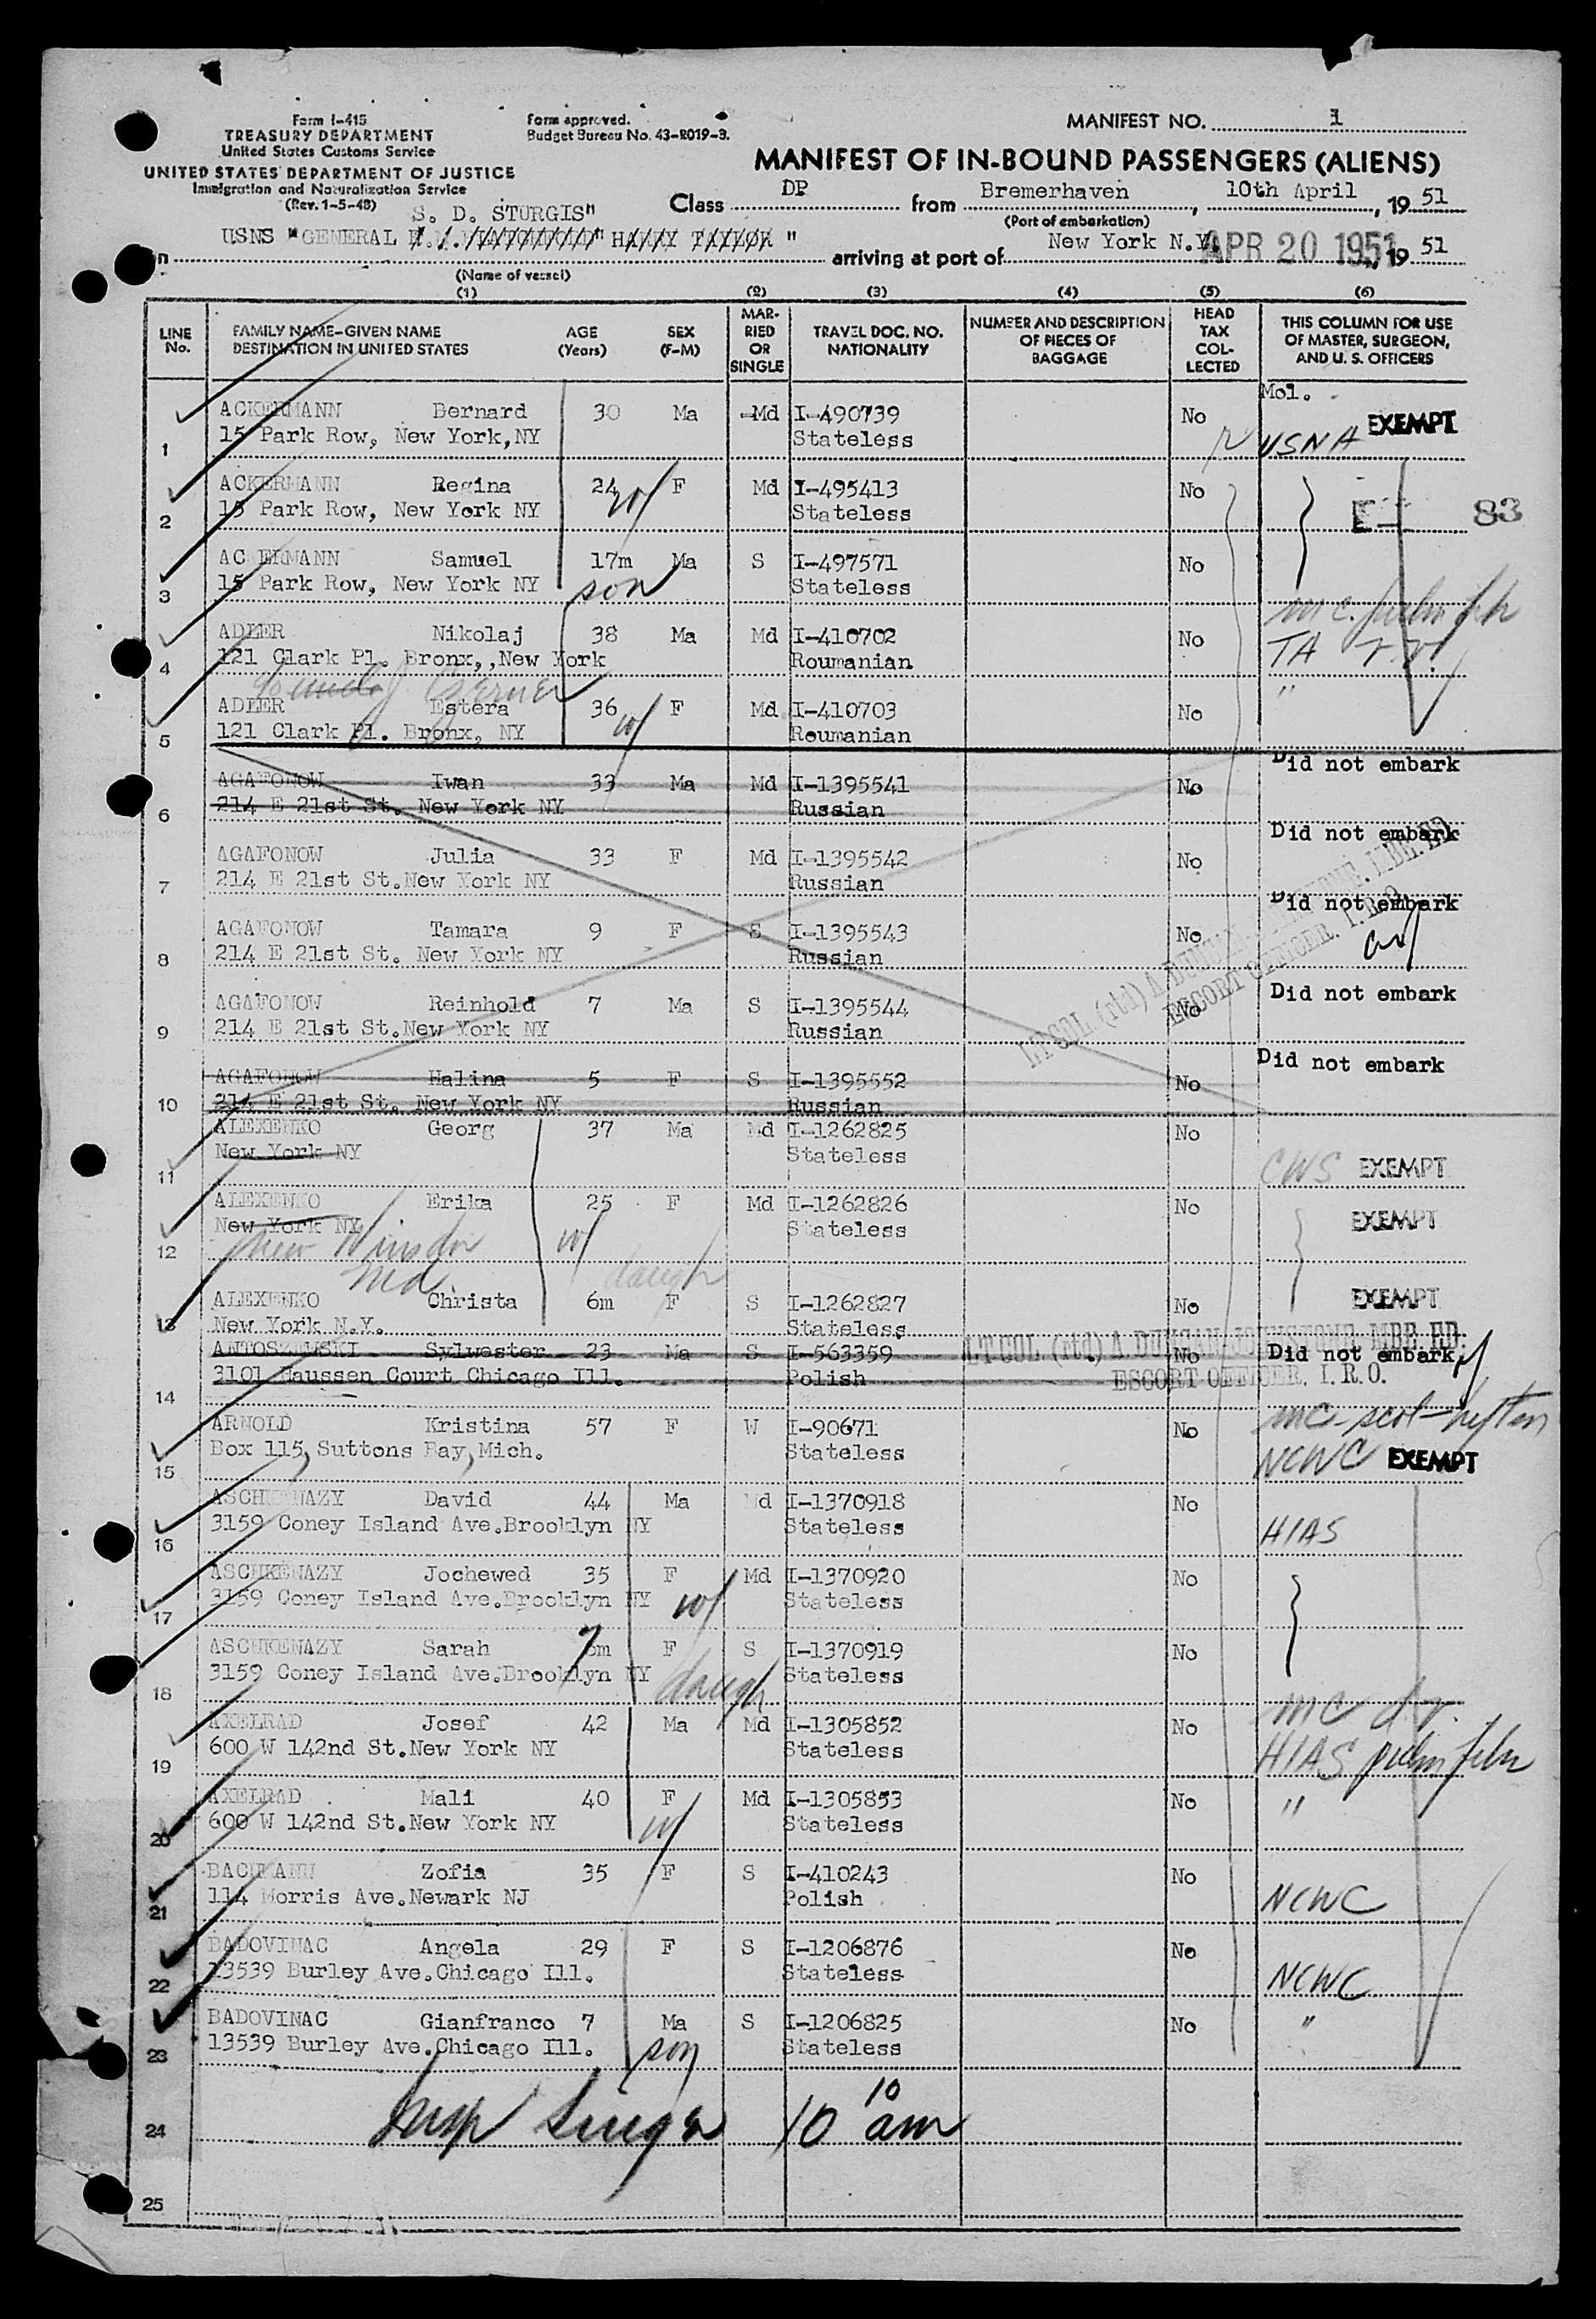 Form I-415
TREASURY DEPARTMENT
United States Customs Service
UNITED STATES DEPARTMENT OF JUSTICE
Immigration and Naturalization Service
(Rev. 1-5-48)
Form approved.
Budget Bureau No. 43-R019-3.
MANIFEST NO. 1
MANIFEST OF IN-BOUND PASSENGERS (ALIENS)
Class DP from Bremerhaven, 10th April, 19 51
(Port of embarkation)
S. D. STURGIS"
USNS "GENERAL
(Name of vessel)
arriving at port of New York N.Y. APR 20 1951, 19 51
(1) (2) (3) (4) (5) (6)
LINE No. FAMILY NAME-GIVEN NAME DESTINATION IN UNITED STATES AGE (Years) SEX (F-M) MARRIED OR SINGLE TRAVEL DOC. NO. NATIONALITY NUMBER AND DESCRIPTION OF PIECES OF BAGGAGE HEAD TAX COLLECTED THIS COLUMN FOR USE OF MASTER, SURGEON, AND U. S. OFFICERS
Mol.
ACKERMANN Bernard 30 Ma Md I-490739 No EXEMPT
1 15 Park Row, New York,NY Stateless USNA
ACKERMANN Regina 24 w/ F Md I-495413 No
2 15 Park Row, New York NY Stateless 83
ACKERMANN Samuel 17m Ma S I-497571 No
3 15 Park Row, New York NY son Stateless
ADLER Nikolaj 38 Ma Md I-410702 No
4 121 Clark Pl. Bronx,,New York Roumanian TA
ADLER Estera 36 w/ F Md I-410703 No "
5 121 Clark Pl. Bronx, NY Roumanian
Did not embark
AGAFONOW Iwan 33 Ma Md I-1395541 No
6 214 E 21st St. New York NY Russian
Did not embark
AGAFONOW Julia 33 F Md I-1395542 No
7 214 E 21st St.New York NY Russian
Did not embark
AGAFONOW Tamara 9 F S I-1395543 No
8 214 E 21st St. New York NY Russian
Did not embark
AGAFONOW Reinhold 7 Ma S I-1395544 No
9 214 E 21st St.New York NY Russian
LT COL (rtd) A. DUNCAN JOHNSTONE. MBE. ED
ESCORT OFFICER. I. R. O.
Did not embark
AGAFONOW Halina 5 F S I-1395552 No
10 214 E 21st St. New York NY Russian
ALEXENKO Georg 37 Ma Md I-1262825 No
New York NY Stateless
11 CWS EXEMPT
ALEXENKO Erika 25 F Md I-1262826 No
New York NY Stateless EXEMPT
12 New Windsor w/
Md daugh
ALEXENKO Christa 6m F S I-1262827 No EXEMPT
13 New York N.Y. Stateless
ANTOSZEWSKI Sylwester 23 Ma S I-563359 No Did not embark
LT COL (rtd) A. DUNCAN JOHNSTONE. MBE. ED.
14 3101 Haussen Court Chicago Ill. Polish
ESCORT OFFICER. I. R. O.
ARNOLD Kristina 57 F W I-90671 No
15 Box 115, Suttons Bay, Mich. Stateless NCWC EXEMPT
ASCHKENAZY David 44 Ma Md I-1370918 No
16 3159 Coney Island Ave.Brooklyn NY Stateless HIAS
ASCHKENAZY Jochewed 35 F Md I-1370920 No
17 3159 Coney Island Ave.Brooklyn NY w/ Stateless
ASCHKENAZY Sarah 7m F S I-1370919 No
18 3159 Coney Island Ave.Brooklyn NY daugh Stateless
AXELRAD Josef 42 Ma Md I-1305852 No MC
19 600 W 142nd St.New York NY Stateless HIAS
AXELRAD Mali 40 F Md I-1305853 No "
20 600 W 142nd St.New York NY w/ Stateless
BACHMANN Zofia 35 F S I-410243 No
21 114 Morris Ave.Newark NJ Polish NCWC
BADOVINAC Angela 29 F S I-1206876 No
22 13539 Burley Ave.Chicago Ill. Stateless NCWC
BADOVINAC Gianfranco 7 Ma S I-1206825 No "
23 13539 Burley Ave.Chicago Ill. son Stateless
24 Insp Singer 10 10 am
25